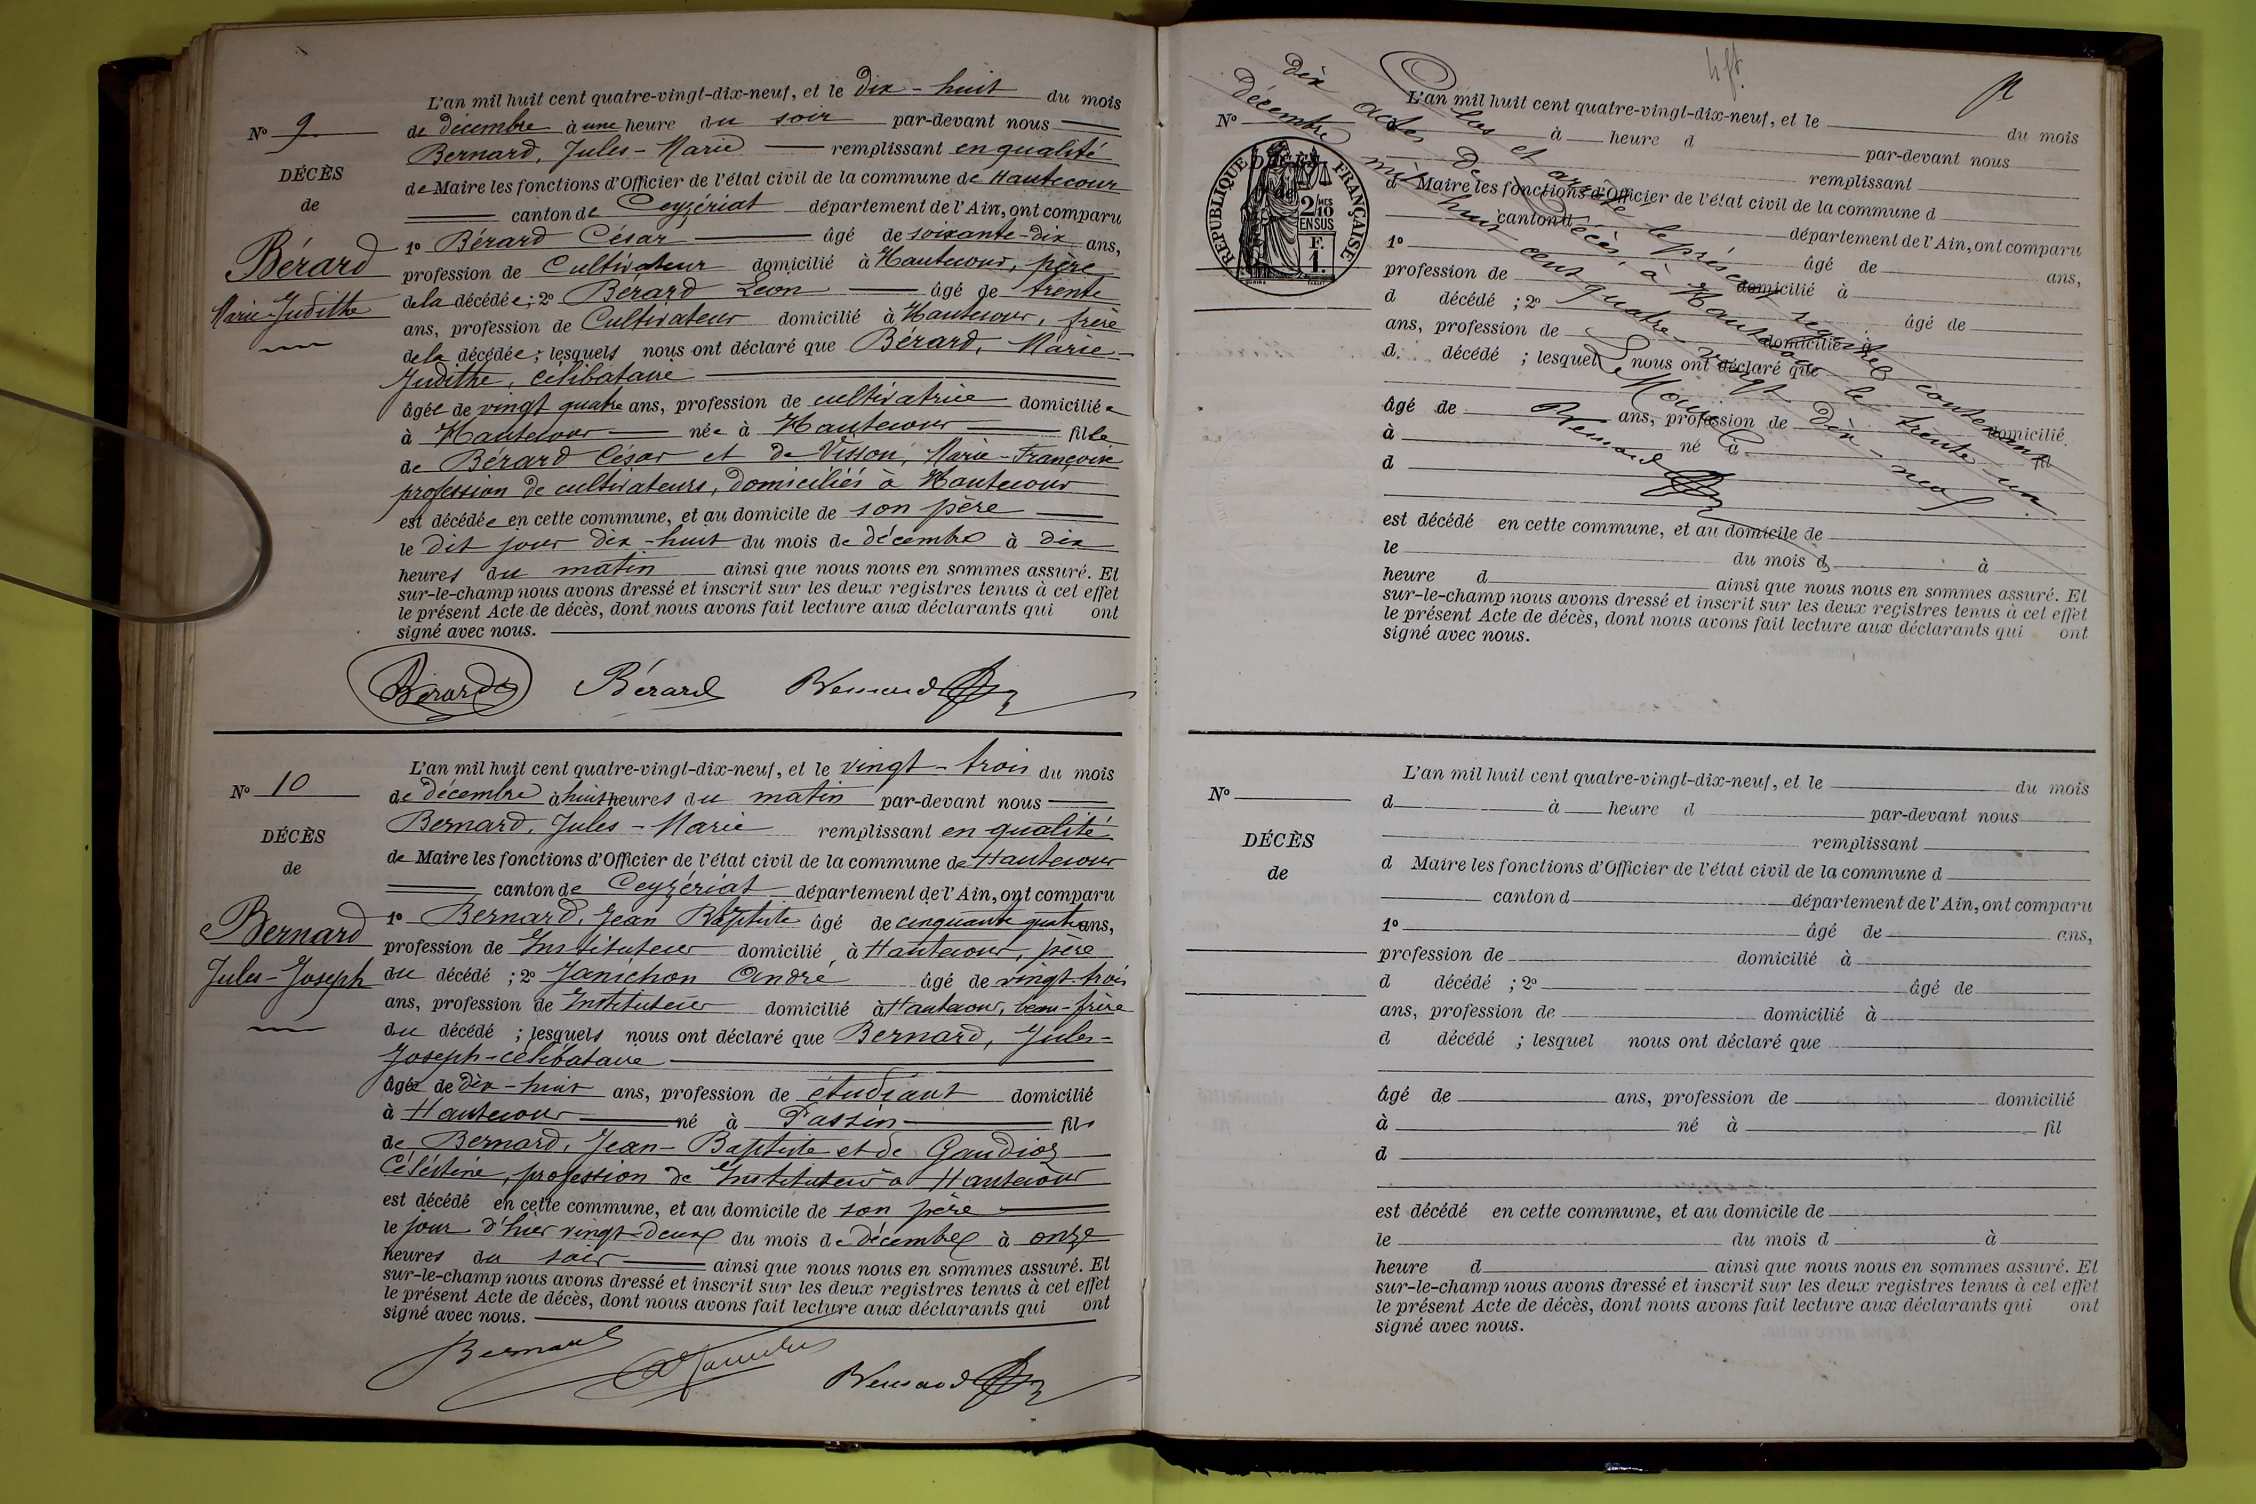 L'an mil huit cent quatre-vingt-dix-neuf, et le dix-huit du mois
N° 9
de décembre à une heure du soir par-devant nous
Bernard, Jules-Marie remplissant en qualité
DÉCÈS
de Maire les fonctions d'Officier de l'état civil de la commune de Hautecour
de
canton de Ceyzériat département de l'Ain, ont comparu
Bérard
1° Bérard César âgé de soixante-dix ans,
profession de Cultivateur domicilié à Hautecour, père
Marie-Judithe
de la décédée; 2° Bérard Léon âgé de trente
ans, profession de Cultivateur domicilié à Hautecour, frère
de la décédée; lesquels nous ont déclaré que Bérard, Marie-
Judithe, célibataire
âgée de vingt quatre ans, profession de cultivatrice domiciliée
à Hautecour née à Hautecour fille
de Bérard César et de Visson, Marie-Françoise
profession de cultivateurs, domiciliés à Hautecour
est décédée en cette commune, et au domicile de son père
le dit jour dix-huit du mois de décembre à dix
heures du matin ainsi que nous nous en sommes assuré. Et
sur-le-champ nous avons dressé et inscrit sur les deux registres tenus à cet effet
le présent Acte de décès, dont nous avons fait lecture aux déclarants qui ont
signé avec nous.
Bérard Bérard Bernard
L'an mil huit cent quatre-vingt-dix-neuf, et le vingt-trois du mois
N° 10
de décembre à huit heures du matin par-devant nous
Bernard, Jules-Marie remplissant en qualité
DÉCÈS
de Maire les fonctions d'Officier de l'état civil de la commune de Hautecour
de
canton de Ceyzériat département de l'Ain, ont comparu
Bernard
1° Bernard, Jean Baptiste âgé de cinquante quatre ans,
profession de Instituteur domicilié à Hautecour, père
Jules-Joseph
du décédé; 2° Janichon André âgé de vingt-trois
ans, profession de Instituteur domicilié à Hautecour, beau-frère
du décédé; lesquels nous ont déclaré que Bernard, Jules-
Joseph-célibataire
âgé de dix-huit ans, profession de étudiant domicilié
à Hautecour né à Passin fils
de Bernard, Jean-Baptiste et de Gaudioz
Célestine, profession de Instituteur à Hautecour
est décédé en cette commune, et au domicile de son père
le jour d'hier vingt-deux du mois de décembre à onze
heures du soir ainsi que nous nous en sommes assuré. Et
sur-le-champ nous avons dressé et inscrit sur les deux registres tenus à cet effet
le présent Acte de décès, dont nous avons fait lecture aux déclarants qui ont
signé avec nous.
Bernard Bernard
Clos et arrêté le présent registre contenant
dix actes de Décès, à Hautecour le trente un
décembre mil huit cent quatre-vingt Dix-neuf
Le Maire
Bernard
L'an mil huit cent quatre-vingt-dix-neuf, et le du mois
N° à heure d par-devant nous
remplissant
RÉPUBLIQUE FRANÇAISE
2/10 MES
EN SUS
F.
1.
d Maire les fonctions d'Officier de l'état civil de la commune d
canton d département de l'Ain, ont comparu
1° âgé de ans,
profession de domicilié à
d décédé ; 2° âgé de
ans, profession de domicilié à
d décédé ; lesquel nous ont déclaré que
âgé de ans, profession de domicilié
à né à fil
d
est décédé en cette commune, et au domicile de
le du mois d à
heure d ainsi que nous nous en sommes assuré. Et
sur-le-champ nous avons dressé et inscrit sur les deux registres tenus à cet effet
le présent Acte de décès, dont nous avons fait lecture aux déclarants qui ont
signé avec nous.
L'an mil huit cent quatre-vingt-dix-neuf, et le du mois
N°
d à heure d par-devant nous
remplissant
DÉCÈS
d Maire les fonctions d'Officier de l'état civil de la commune d
de
canton d département de l'Ain, ont comparu
1° âgé de ans,
profession de domicilié à
d décédé ; 2° âgé de
ans, profession de domicilié à
d décédé ; lesquel nous ont déclaré que
âgé de ans, profession de domicilié
à né à fil
d
est décédé en cette commune, et au domicile de
le du mois d à
heure d ainsi que nous nous en sommes assuré. Et
sur-le-champ nous avons dressé et inscrit sur les deux registres tenus à cet effet
le présent Acte de décès, dont nous avons fait lecture aux déclarants qui ont
signé avec nous.